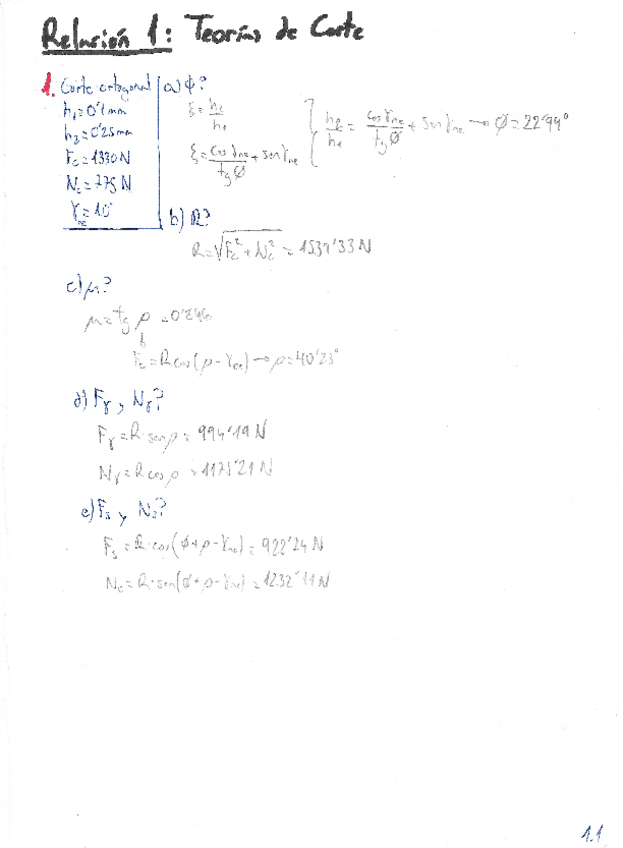 Relación 1: Teorías de Corte
1. Corte ortogonal
h₁=0'1mm
h₂=0'25mm
Fc=1330N
Nc=775N
γne=10°
a) ϕ?
ξ=h₂/h₁
ξ=cosγne/tgϕ + senγne
h₂/h₁ = cosγne/tgϕ + senγne → ϕ=22'94°
b) R?
R=√(Fc²+Nc²) = 1539'33N
c) μ?
μ=tg ρ =0'846
Fc=Rcos(ρ-γne) → ρ=40'23°
d) Fγ, Nγ?
Fγ=R·senρ= 994'19 N
Nγ=Rcosρ =1175'21N
e) Fs y Ns?
Fs=R·cos(ϕ+ρ-γne)=922'24 N
Nc=R·sen(ϕ+ρ-γne)=1232'11N
1.1